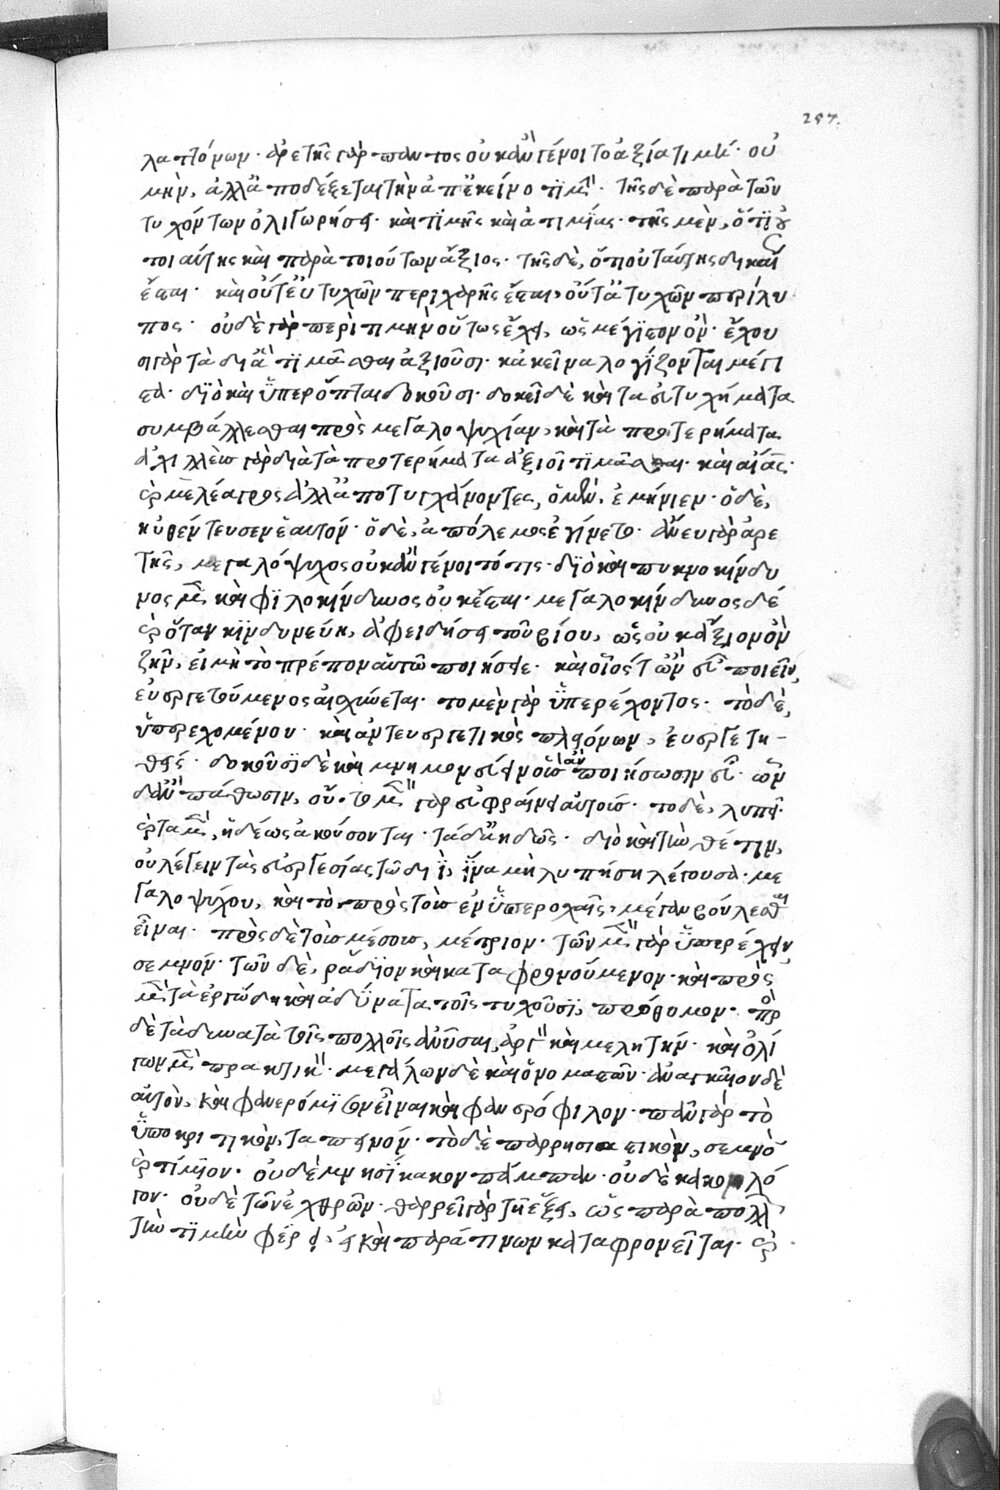 257.
λαττόνων· ἀρετῆς γὰρ παντὸς οὐκ ἂν γένοιτο ἀξία τιμή· οὐ
μὴν, ἀλλὰ ἀποδέξεται τὴν ἀπ' ἐκείνο τιμ· τῆς δὲ παρὰ τῶν
τυχόντων ὀλιγωρήσει· καὶ τιμῆς καὶ ἀτιμίας· τῆς μὲν, ὅτι οὐ
τοιαύτης καὶ παρὰ τοιούτων ἄξιος· τῆς δὲ, ὅτι οὐ ταύτης δικαί
ἔσται· καὶ οὔτ' εὐτυχῶν περιχαρὴς ἔσται, οὔτ' ἀτυχῶν περίλυ
πος· οὐδὲ γὰρ περὶ τιμὴν οὕτως ἔχει, ὡς μέγιστον ὄν· ἔχου
σι γὰρ τὰ δι' ἃ τιμᾶσθαι ἀξιοῦσι· κἀκεῖνα λογίζονται μέγι
στα· διὸ καὶ ὑπερόπται δοκοῦσι· δοκεῖ δὲ καὶ τὰ εὐτυχήματα
συμβάλλεσθαι πρὸς μεγαλοψυχίαν, καὶ τὰ προτερήματα
ἀχιλλεὺς γὰρ διὰ τὰ προτερήματα ἀξιοῖ τιμᾶσθαι· καὶ αἴας·
καὶ μελέαγρος ἀλλὰ ἀποτυγχάνοντες, ὁ μὲν, ἐμήνιεν· ὁ δὲ,
κἠθέντευσεν ἑαυτόν· ὁ δὲ, ἀπόλεμος ἐγίνετο· ἄνευ γὰρ ἀρε
τῆς, μεγαλόψυχος οὐκ ἂν γένοιτό τις· διὸ καὶ πυκνοκίνδυ
νος μὲν καὶ φιλοκίνδυνος οὐκ ἔσται· μεγαλοκίνδυνος δέ
καὶ ὅταν κινδυνεύῃ, ἀφειδήσει τοῦ βίου, ὡς οὐκ ἄξιον ὂν
ζῆν, εἰ μὴ τὸ πρέπον αὐτῷ ποιήσει· καὶ οἷός τ' ὢν εὖ ποιεῖν,
εὐεργετούμενος αἰσχύνεται· τὸ μὲν γὰρ ὑπερέχοντος· τὸ δὲ,
ὑπερεχομένου· καὶ ἀντευεργετικὸς πλειόνων, εὐεργετη-
θείς· δοκοῦσι δὲ καὶ μνημονεύειν οἷς ἂν ποιήσωσιν εὖ· ὧν
δ' ἂν πάθωσιν, οὔ· τὸ μὲν γὰρ εὐφραίνει αὐτούς· τὸ δὲ, λυπεῖ·
καὶ τὰ μὲν, ἡδέως ἀκούσονται· τὰ δ' ἀηδῶς· διὸ καὶ τὴν θέτιν,
οὐ λέγειν τὰς εὐεργεσίας τῷ διΐ, ἵνα μὴ λυπήσῃ λέγουσα· με
γαλοψύχου, καὶ τὸ πρὸς τοὺς ἐν ὑπεροχαῖς, μέγαν βούλεσθαι
εἶναι· πρὸς δὲ τοὺς μέσους, μέτριον· τῶν μὲν γὰρ ὑπερέχειν,
σεμνόν· τῶν δὲ, ῥᾴδιον καὶ καταφρονούμενον· καὶ πρὸς
μὲν τὰ ἐργώδη καὶ ἀδύνατα τοῖς τυχοῦσι, πρόθυμον· πρὸς
δὲ τὰ δυνατὰ τοῖς πολλοῖς ἀνῦσαι, ἀργὸν καὶ μελητήν· καὶ ὀλί
γων μὲν πρακτικὸν· μεγάλων δὲ καὶ ὀνομαστῶν· ἀναγκαῖον δὲ
αὐτὸν, καὶ φανερόμισον εἶναι καὶ φανερόφιλον· πᾶν γὰρ τὸ
ὑποκριτικὸν, ταπεινόν· τὸ δὲ παρρησιαστικὸν, σεμνὸν
καὶ τίμιον· οὐδὲ μνησίκακον πάμπαν· οὐδὲ κακολό
γον· οὐδὲ τῶν ἐχθρῶν· θαρρεῖ γὰρ τῇ ἕξει, ὡς παρὰ πολλ
τὴν τιμὴν φέρει, εἰ καὶ παρά τινων καταφρονεῖται· καὶ